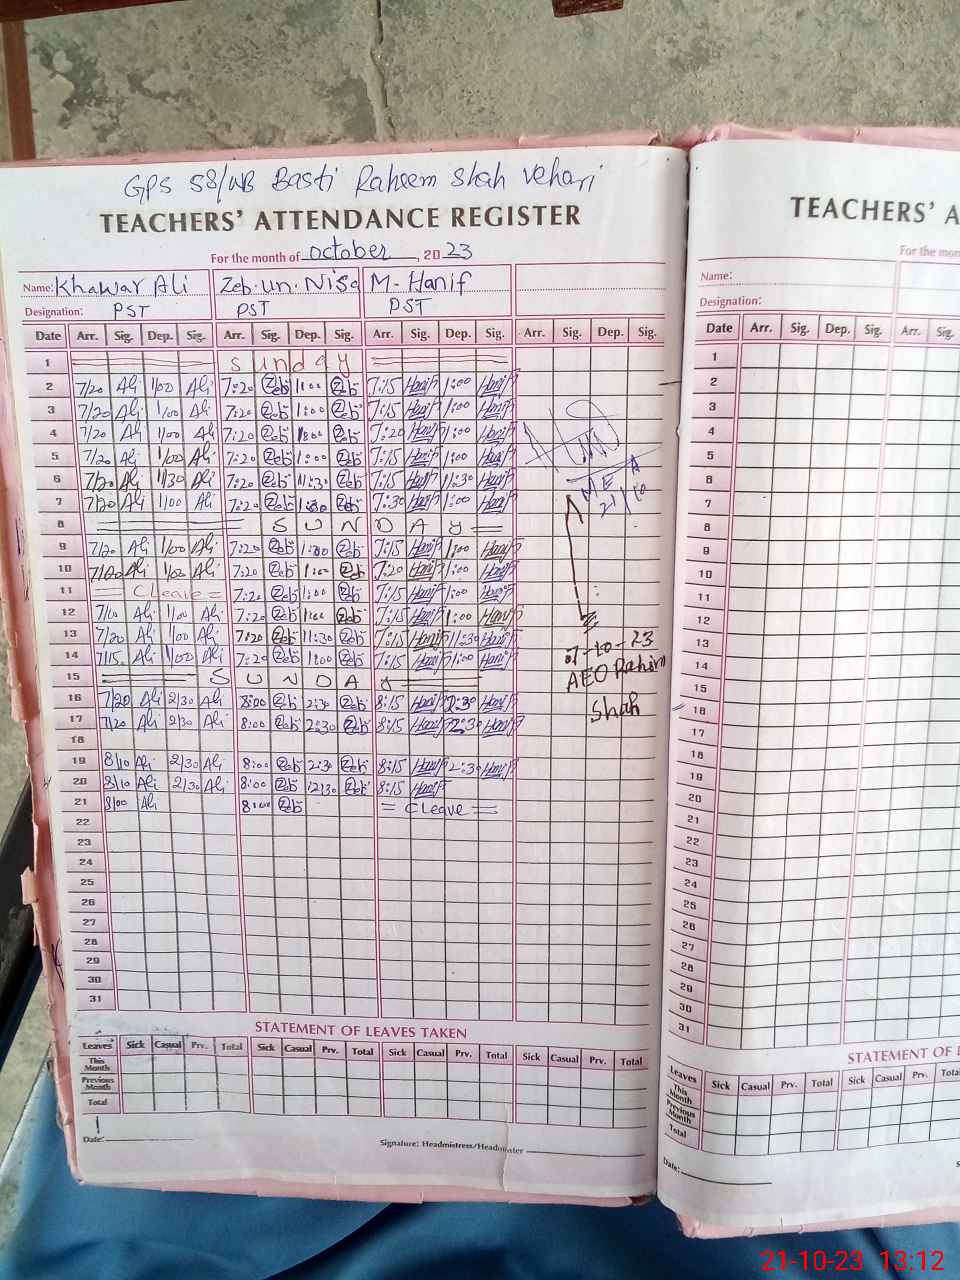 GPS 58/WB Basti Raheem Shah Vehari
TEACHERS' ATTENDANCE REGISTER
For the month of October, 2023
Name: Khawar Ali Zeb-un-Nisa M-Hanif
Designation: PST PST PST
Date Arr. Sig. Dep. Sig. Arr. Sig. Dep. Sig. Arr. Sig. Dep. Sig. Arr. Sig. Dep. Sig.
1 Sunday
2 7/20 Ali 1/00 Ali 7:20 Zeb 1:00 Zeb 7:15 Hanif 1:00 Hanif
3 7/20 Ali 1/00 Ali 7:20 Zeb 1:00 Zeb 7:15 Hanif 1:00 Hanif
4 7/20 Ali 1/00 Ali 7:20 Zeb 1:00 Zeb 7:20 Hanif 1:00 Hanif
5 7/20 Ali 1/00 Ali 7:20 Zeb 1:00 Zeb 7:15 Hanif 1:00 Hanif
6 7/20 Ali 11/30 Ali 7:20 Zeb 11:30 Zeb 7:15 Hanif 11:30 Hanif
7 7/20 Ali 1/00 Ali 7:20 Zeb Zeb 7:30 Hanif 1:00 Hanif
MEA
21/10
8 SUNDAY
9 7/20 Ali 1/00 Ali 7:20 Zeb 1:00 Zeb 7:15 Hanif 1:00 Hanif
10 7/20 Ali 1/00 Ali 7:20 Zeb 1:00 Zeb 7:20 Hanif 1:00 Hanif
11 = CLeave = 7:20 Zeb 1:00 Zeb 7:15 Hanif 1:00 Hanif
12 Ali 1/00 Ali 7:20 Zeb 1:00 Zeb 7:15 Hanif 1:00 Hanif
13 7/20 Ali 1/00 Ali 7:20 Zeb 11:30 Zeb 7:15 Hanif 11:30 Hanif
14 7/15 Ali 1/00 Ali 7:20 Zeb 1:00 Zeb 7:15 Hanif 1:00 Hanif
-10-23
AEO Rahim
Shah
15 SUNDAY
16 7/20 Ali 2/30 Ali 8:00 Zeb 2:30 Zeb 8:15 Hanif 2:30 Hanif
17 7/20 Ali 2/30 Ali 8:00 Zeb 2:30 Zeb 8:15 Hanif 2:30 Hanif
18
19 8/10 Ali 2/30 Ali 8:00 Zeb 2:30 Zeb 8:15 Hanif 2:30 Hanif
20 8/10 Ali 2/30 Ali 8:00 Zeb 2:30 Zeb 8:15 Hanif
21 8/00 Ali 8:00 Zeb = CLeave =
22
23
24
25
26
27
28
29
30
31
STATEMENT OF LEAVES TAKEN
Leaves Sick Casual Prv. Total Sick Casual Prv. Total Sick Casual Prv. Total Sick Casual Prv. Total
This Month
Previous Month
Total
Date:
Signature: Headmistress/Headmaster
TEACHERS' A
For the mon
Name:
Designation:
Date Arr. Sig. Dep. Sig. Arr. Sig.
1
2
3
4
5
6
7
8
9
10
11
12
13
14
15
16
17
18
19
20
21
22
23
24
25
26
27
28
29
30
31
STATEMENT OF
Leaves Sick Casual Prv. Total Sick Casual Prv. Total
This Month
Previous Month
Total
Date:
21-10-23 13:12